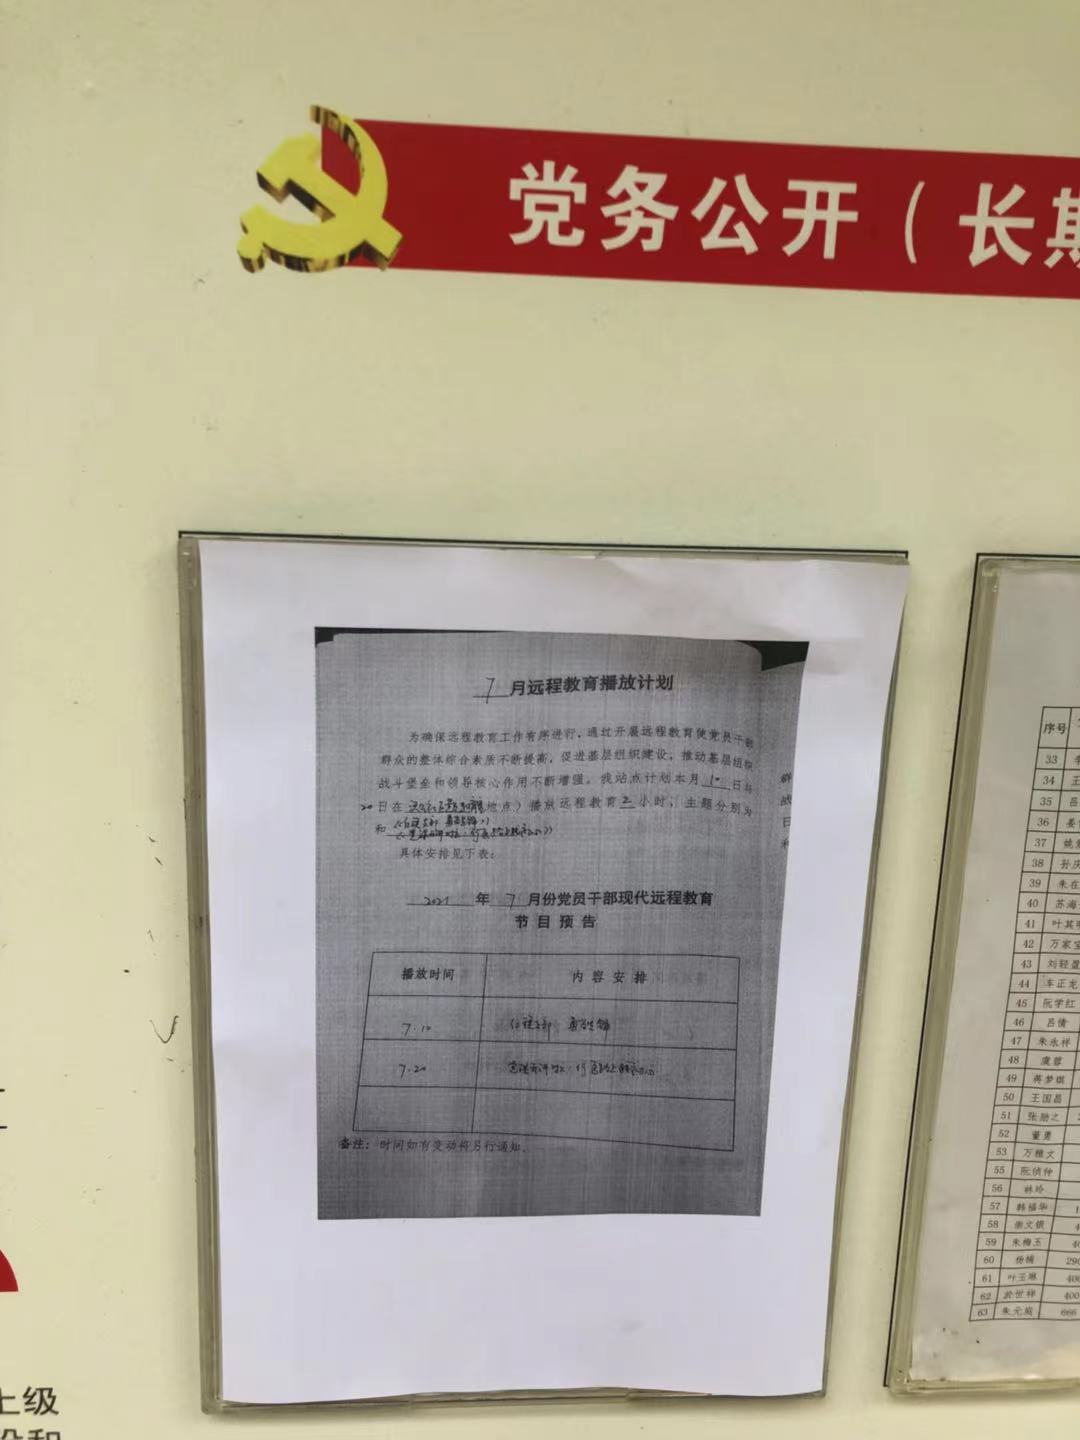 党务公开（长期
7月远程教育播放计划
为确保远程教育工作有序进行，通过开展远程教育使党员干部
群众的整体综合素质不断提高，促进基层组织建设，推动基层组织
战斗堡垒和领导核心作用不断增强。我站点计划本月10日与
20日在 地点）播放远程教育2小时，主题分别为
和
具体安排见下表：
2021年7月份党员干部现代远程教育
节目预告
播放时间 内容安排
7.10
7.20
备注：时间如有变动将另行通知。
群
战
日
和
序号
33 李
34 王
35 吕
36 姜
37 姚
38 孙庆
39 朱在
40 苏海
41 叶其
42 万家宝
43 刘轻盈
44 车正龙
45 阮学红
46 吕倩
47 朱永祥
48 虞蓉
49 蒋梦琪
50 王国昌
51 张勋之
52 董勇
53 万雅文
55 阮侦仲
56 林玲
57 韩福华 1
58 崇文银 4
59 朱梅玉 40
60 杨楠 290
61 叶玉琳 400
62 於世祥 400
63 朱元庭 666
上级